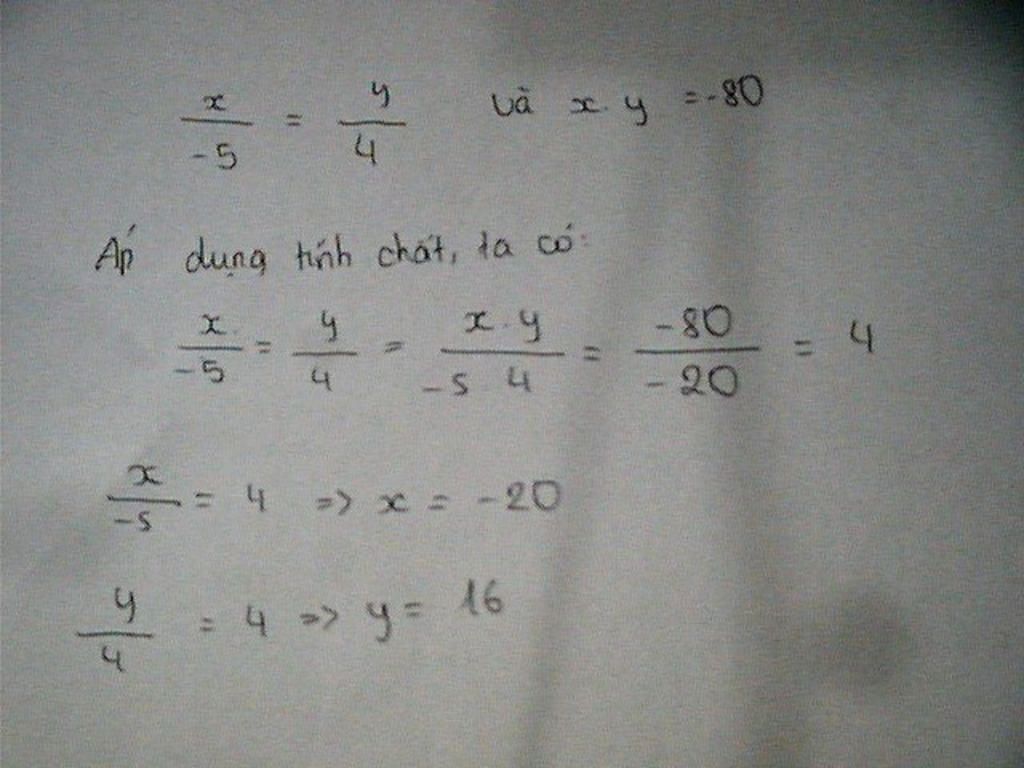 x/-5 = y/4 và x.y = -80
Áp dụng tính chất, ta có:
x/-5 = y/4 = x.y/-5 4 = -80/-20 = 4
x/-5 = 4 => x = -20
y/4 = 4 => y = 16